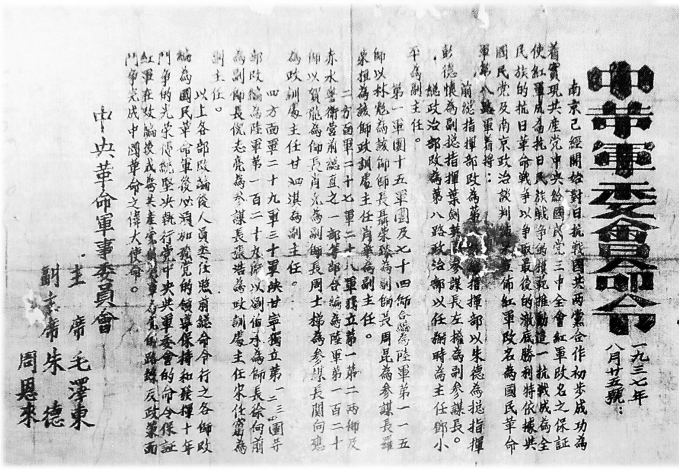 中革軍委會命令
一九三七年
八月廿五號：
南京已經開始對日抗戰國共兩黨合作初步成功為
着實現共產党中央給國民党三中全會紅軍改名之保証
使紅軍成為抗日民族戰爭的模範推動這一抗戰成為全
民族的抗日革命戰爭以爭取最後的澈底勝利特依據共
國民党及南京政治談判宣佈紅軍改名為國民革命
軍第八路軍着將：
前總指揮部改為第指揮部以朱德為總指揮
彭德懷為副總指揮葉劍英參謀長左權為副參謀長。
總政治部改為第八路政治部以任弼時為主任鄧小
平為副主任。
第一軍團十五軍團及七十四師合編為陸軍第一一五
師以林彪為該師師長聶榮臻為副師長周昆為參謀長羅
榮桓為該師政訓處主任肖華為副主任。
二方面軍二十七軍二十八軍獨立第一第二兩師及
赤水警衛營前總直之一部等部合編為陸軍第一百二十
師以賀龍為師長肖克為副師長周士梯為參謀長關向應
為政訓處主任甘泗淇為副主任。
四方面軍二十九軍三十軍陝甘寧獨立第一二三四團等
部改編為陸軍第一百二十九師以劉伯承為師長徐向前
為副師長倪志亮為參謀長張浩為政訓處主任宋任窮為
副主任。
以上各部改編後人員委任照前總命令行之各師改
編為國民革命軍後必須加強党的領導保持和發揮十年
鬥爭的光榮傳統堅決執行党中央共軍委會的命令保証
紅軍在改編後成為共產党的党軍為党的路線及政策而
鬥爭完成中國革命之偉大使命。
中央革命軍事委員會
主席毛澤東
副主席朱德
周恩來